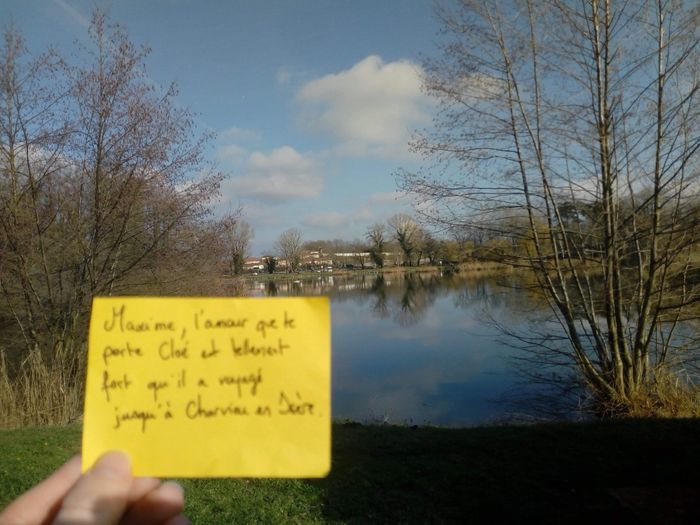 Maxime, l'amour que te
porte Cloé est tellement
fort qu'il a voyagé
jusqu'à Charvieu en Isère.